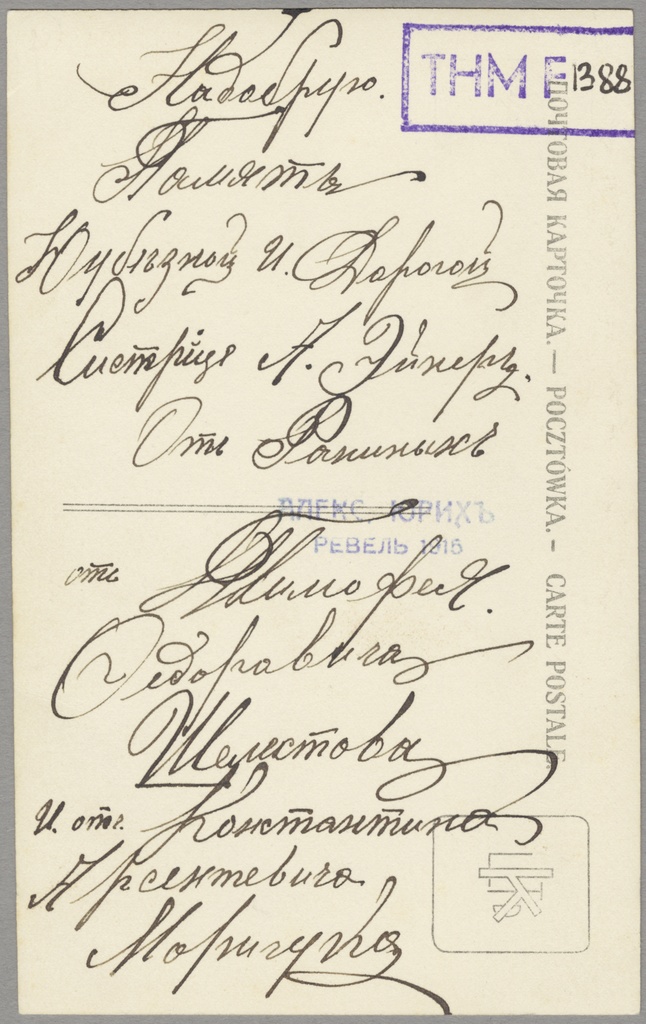 На добрую.
Память
Любѣзной и. Дорогой
Систрице А. Эйнеръ.
Отъ Раниныхъ
отъ Тимофея.
Федоравича
Шелестова
и. отъ. Константина
Арсентевича
Моригука
THM F 1388
ПОЧТОВАЯ КАРТОЧКА. — POCZTÓWKA. — CARTE POSTALE
АЛЕКС. ЮРИХЪ
РЕВЕЛЬ 1916